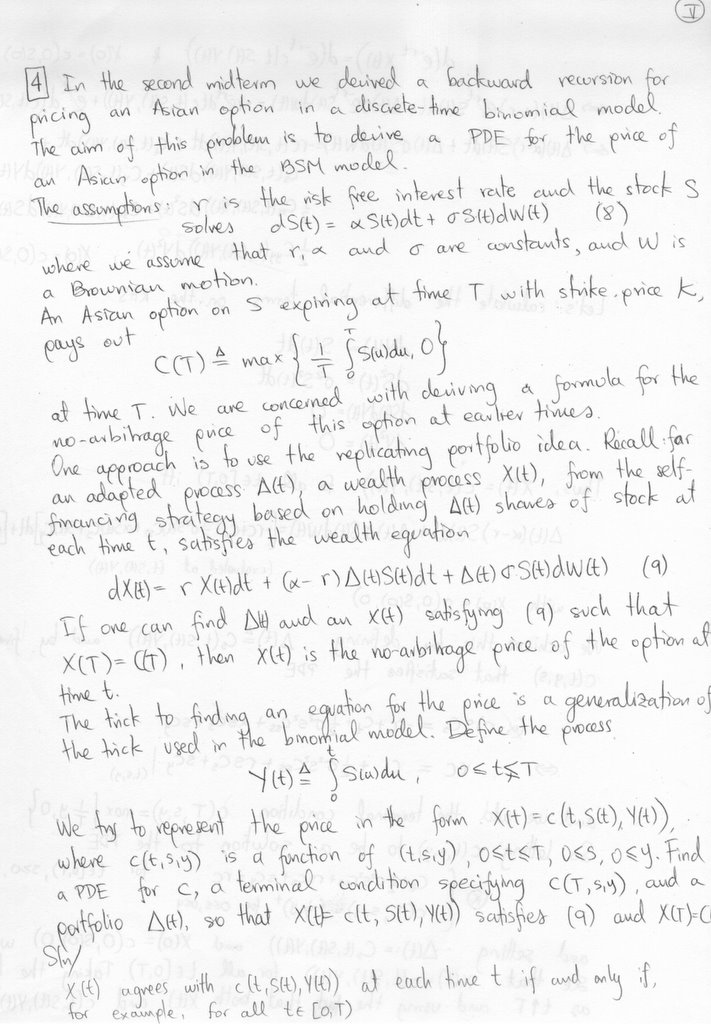 V
4 In the second midterm we derived a backward recursion for
pricing an Asian option in a discrete-time binomial model.
The aim of this problem is to derive a PDE for the price of
an Asian option in the BSM model.
The assumptions: r is the risk free interest rate and the stock S
solves dS(t) = αS(t)dt + σS(t)dW(t) (8)
where we assume that r, α and σ are constants, and W is
a Brownian motion.
An Asian option on S expiring at time T, with strike price K,
pays out
C(T) ≜ max { 1/T ∫₀ᵀ S(u)du, 0 }
at time T. We are concerned with deriving a formula for the
no-arbitrage price of this option at earlier times.
One approach is to use the replicating portfolio idea. Recall: for
an adapted process Δ(t), a wealth process X(t), from the self-
financing strategy based on holding Δ(t) shares of stock at
each time t, satisfies the wealth equation
dX(t) = r X(t)dt + (α - r) Δ(t)S(t)dt + Δ(t) σ S(t)dW(t) (9)
If one can find Δ(t) and an X(t) satisfying (9) such that
X(T) = C(T), then X(t) is the no-arbitrage price of the option at
time t.
The trick to finding an equation for the price is a generalization of
the trick used in the binomial model. Define the process
Y(t) ≜ ∫₀ᵗ S(u)du, 0 ≤ t ≤ T
We try to represent the price in the form X(t) = c(t, S(t), Y(t)),
where c(t,s,y) is a function of (t,s,y), 0≤t≤T, 0≤s, 0≤y. Find
a PDE for c, a terminal condition specifying c(T,s,y), and a
portfolio Δ(t), so that X(t) = c(t, S(t), Y(t)) satisfies (9) and X(T)=C(
Sln/
X(t) agrees with c(t, S(t), Y(t)) at each time t if and only if,
for example, for all t∈[0,T)